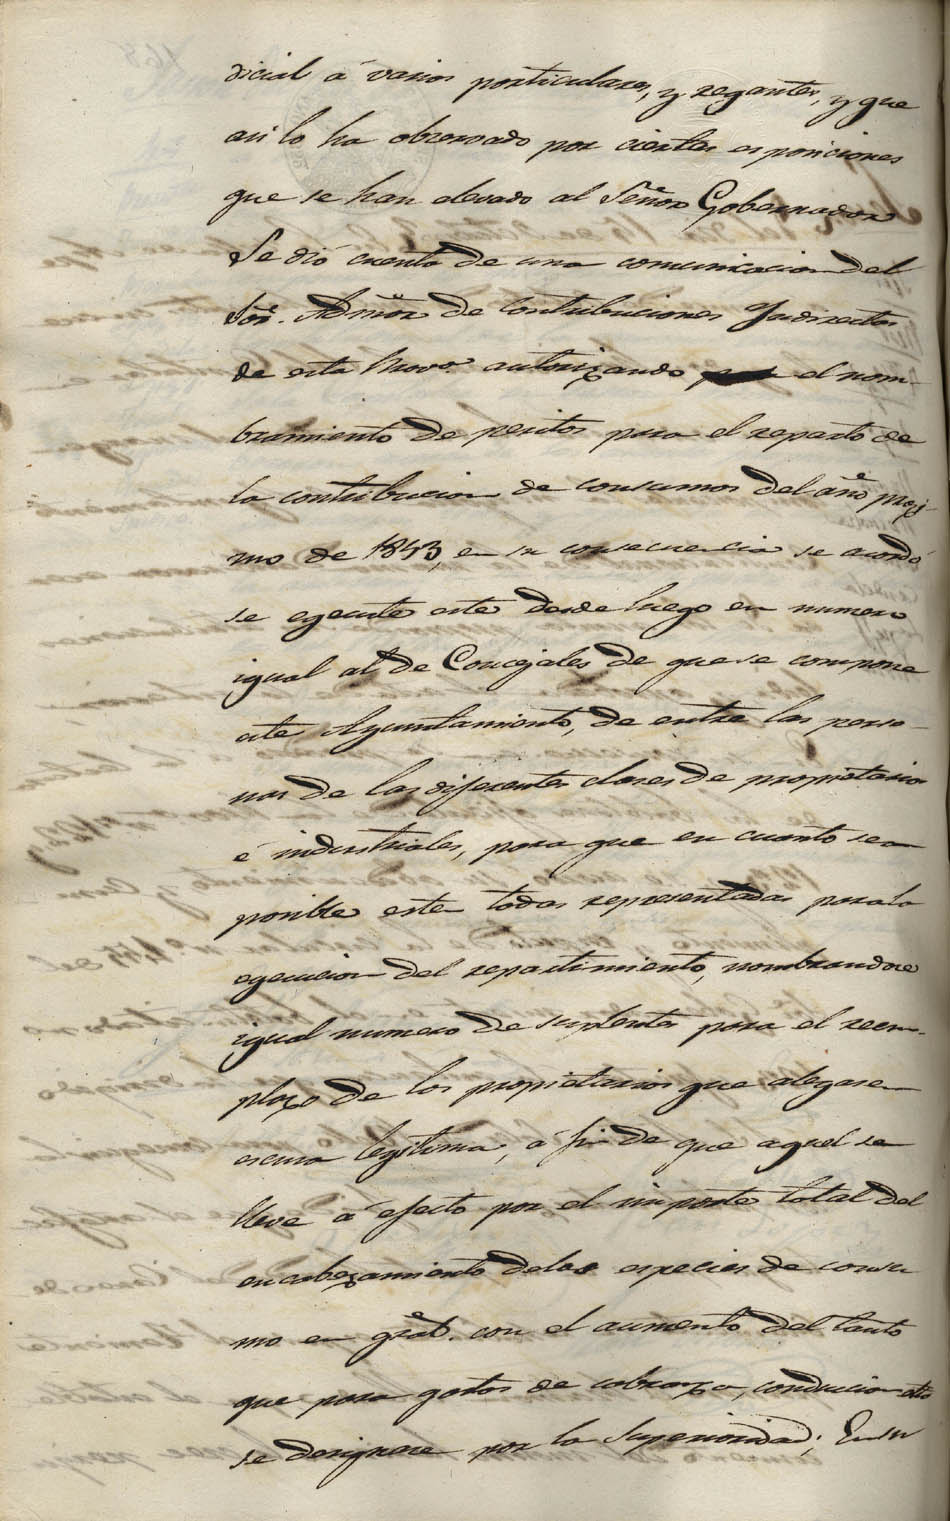 dicial á varios particulares, y regantes, y que
asi lo ha observado por ciertas esposiciones
que se han elevado al Señor Gobernador
Se dió cuenta de una comunicacion del
Sor. Admor de Contribuciones Yndirectas
de esta Prova autorizando el nom-
bramiento de peritos para el reparto de
la contribucion de consumos del año proxi-
mo de 1853, en su consecuencia se acordó
se egecute este desde luego en numero
igual al de Concejales de que se compone
este Ayuntamiento, de entre las perso-
nas de las diferentes clases de propietarios
é industriales, para que en cuanto sea
posible esten todas representadas para la
egecucion del repartimiento, nombrandose
igual numero de suplentes para el reem-
plazo de los propietarios que alegasen
escusa legitima, á fin de que aquel se
lleve á efecto por el importe total del
encabezamiento de las especies de consu
mo en gral. con el aumento del tanto
que para gastos de cobranza, conduccion etc
se designare por la Superioridad; En su